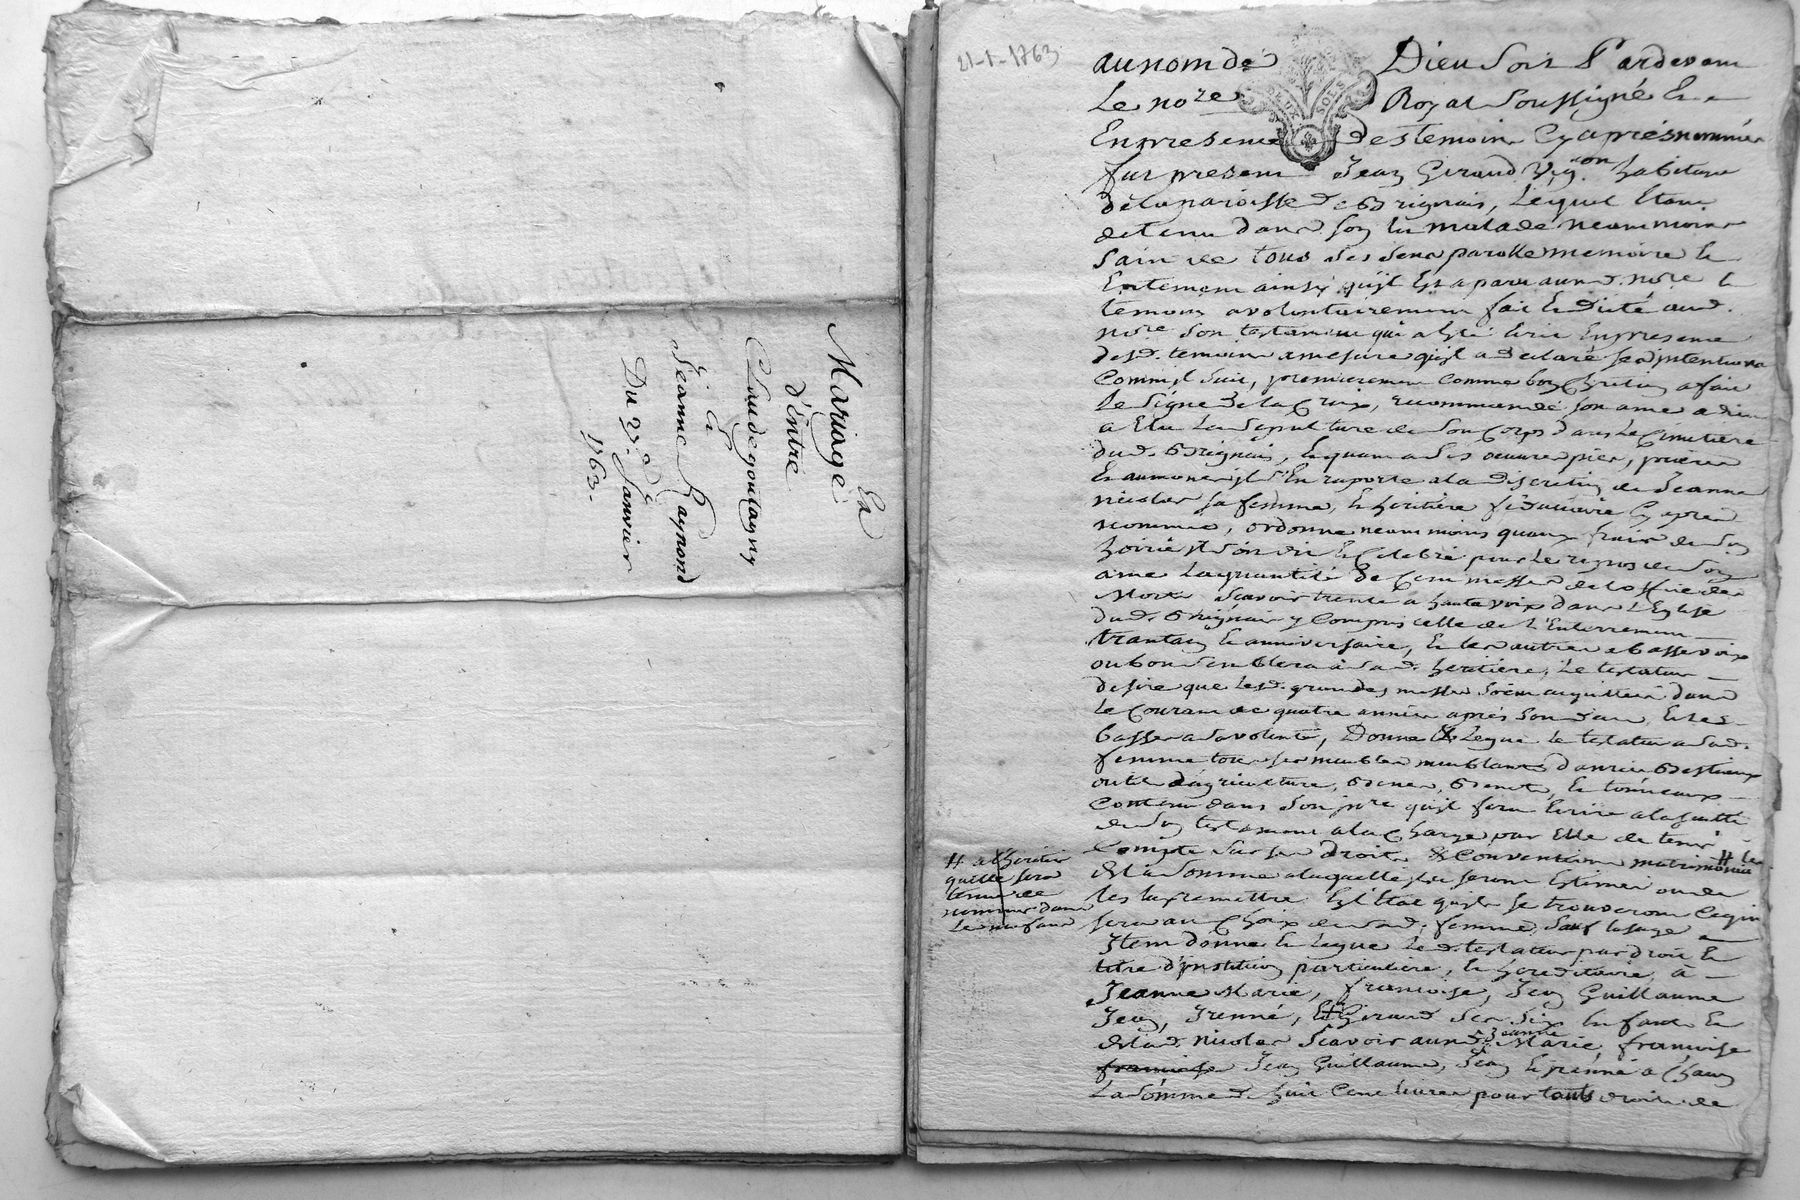 En
Mariage
d'entre
Claude goutagny
Et
Jeanne Raynond
Du 23e Janvier
1763.
21-1-1763
au nom de Dieu Soit Pardevant
Le nore Royal Soussigné Et
En presence des temoins Cy aprés nommés
fut present Jean Giraud Vigon habitant
de la paroisse de Brignais, Lequel Etant
detenu dans son lit malade neanmoins
Sain de tous ses sens parolle memoire et
Entement ainsy qu'jl Est aparu aud. nore et
temoins a volontairement fait Et Dicté aud.
nore Son testament qui a Esté Ecrit En presence
desd. temoins a mesure qu'jl a declaré ses jntentions
Comm'jl Suit, premierement comme bon Chretien a fait
Le Signe de la Croix, recommandé son ame a dieu
a Elu La Sepulture de Son Corps dans Le Cimetiere
dud. Brignais, Et quant a Ses oeuvres pies, prieres
Et aumones jl S'En raporte a la discretion de Jeanne
nicolas sa femme, Et heritiere fiduciaire Cy aprés
nommée, ordonne neanmoins qu'aux frais de Son
hoirie jl Soit dit Et Celebré pour Le repos de Son
ame La quantité de Cent messes de L'office des
Morts Scavoir trente a haute voix dans L'Eglise
dud. Brignais y Compris celle de L'Enterrement
trantain Et anniversaire, Et les autres a basse voix
ou bon Semblera a Sad. heritiere, Le testateur
desire que Lesd. grandes messes Soient acquittées dans
Le Courant de quatre années aprés Son decés, Et les
basses a Sa volonté, Donne & Legue Le testateur a Sad.
femme tous ses meubles meublants danrées Bestiaux
outils d'agriculture, Bennes, Bennots, Et tonneaux
Contenu dans Son jnre qu'jl fera Ecrire a la suitte
de Son testament a la Charge par Elle de tenir
Compte Sur ses droits & Conventions matrimoniaux
# a L'heritier
qu'elle sera
tenue de
nommer dans
Le
# de
de la Somme a laquelle jls seront Estimés ou de
les luy remettre En L'Etat qu'jls se trouveront Ce qui
sera au Choix de Sad. femme, Sauf Lusage
Jtem donne Et Legue Led. testateur par droit Et
titre d'jnstitution particuliere, Et hereditaire a
Jeanne Marie, francoise, Jean Guillaume
Jean, Jrenné, Et Giraud Ses Six Enfants Et
de lad. nicolas Scavoir auxd. Jeanne Marie, francoise
Jean Guillaume, Jean Et jrenné a Chacun
La Somme de huit Cent livres pour touts droits de